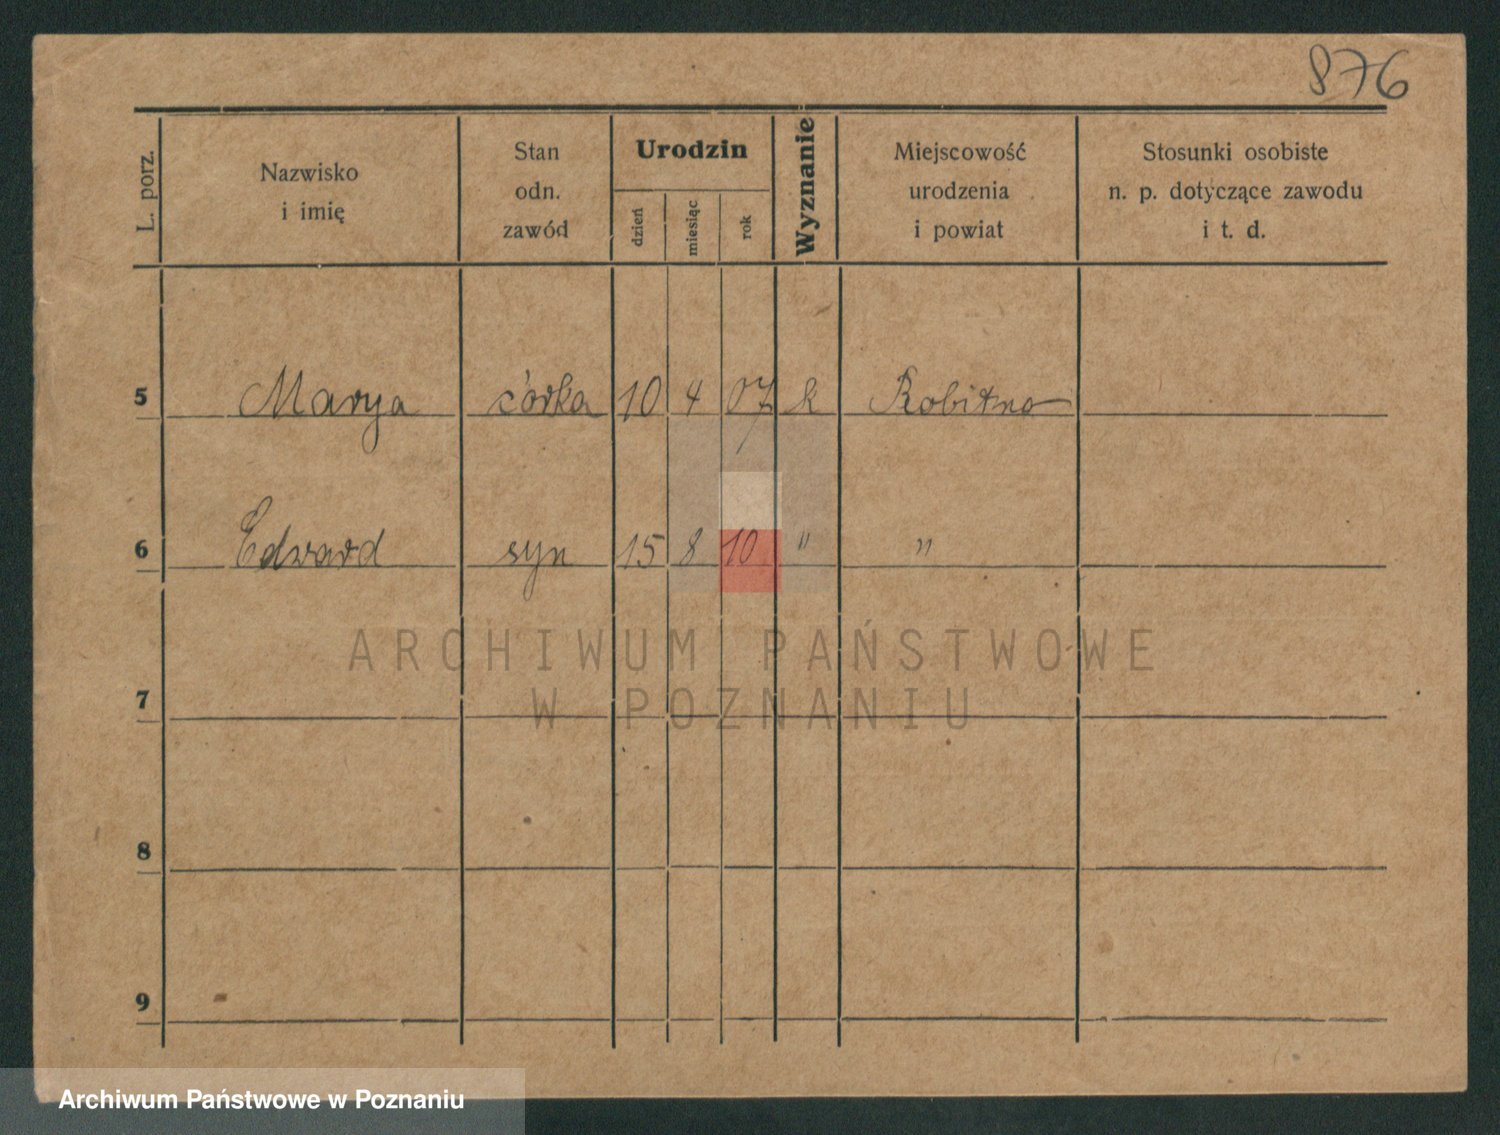 876
L. porz.
Nazwisko
i imię
Stan
odn.
zawód
Urodzin
dzień
miesiąc
rok
Wyznanie
Miejscowość
urodzenia
i powiat
Stosunki osobiste
n. p. dotyczące zawodu
i t. d.
5 Marya córka 10 4 07 k Robitno
6 Edward syn 15 8 10 " "
ARCHIWUM PAŃSTWOWE
W POZNANIU
7
8
9
Archiwum Państwowe w Poznaniu